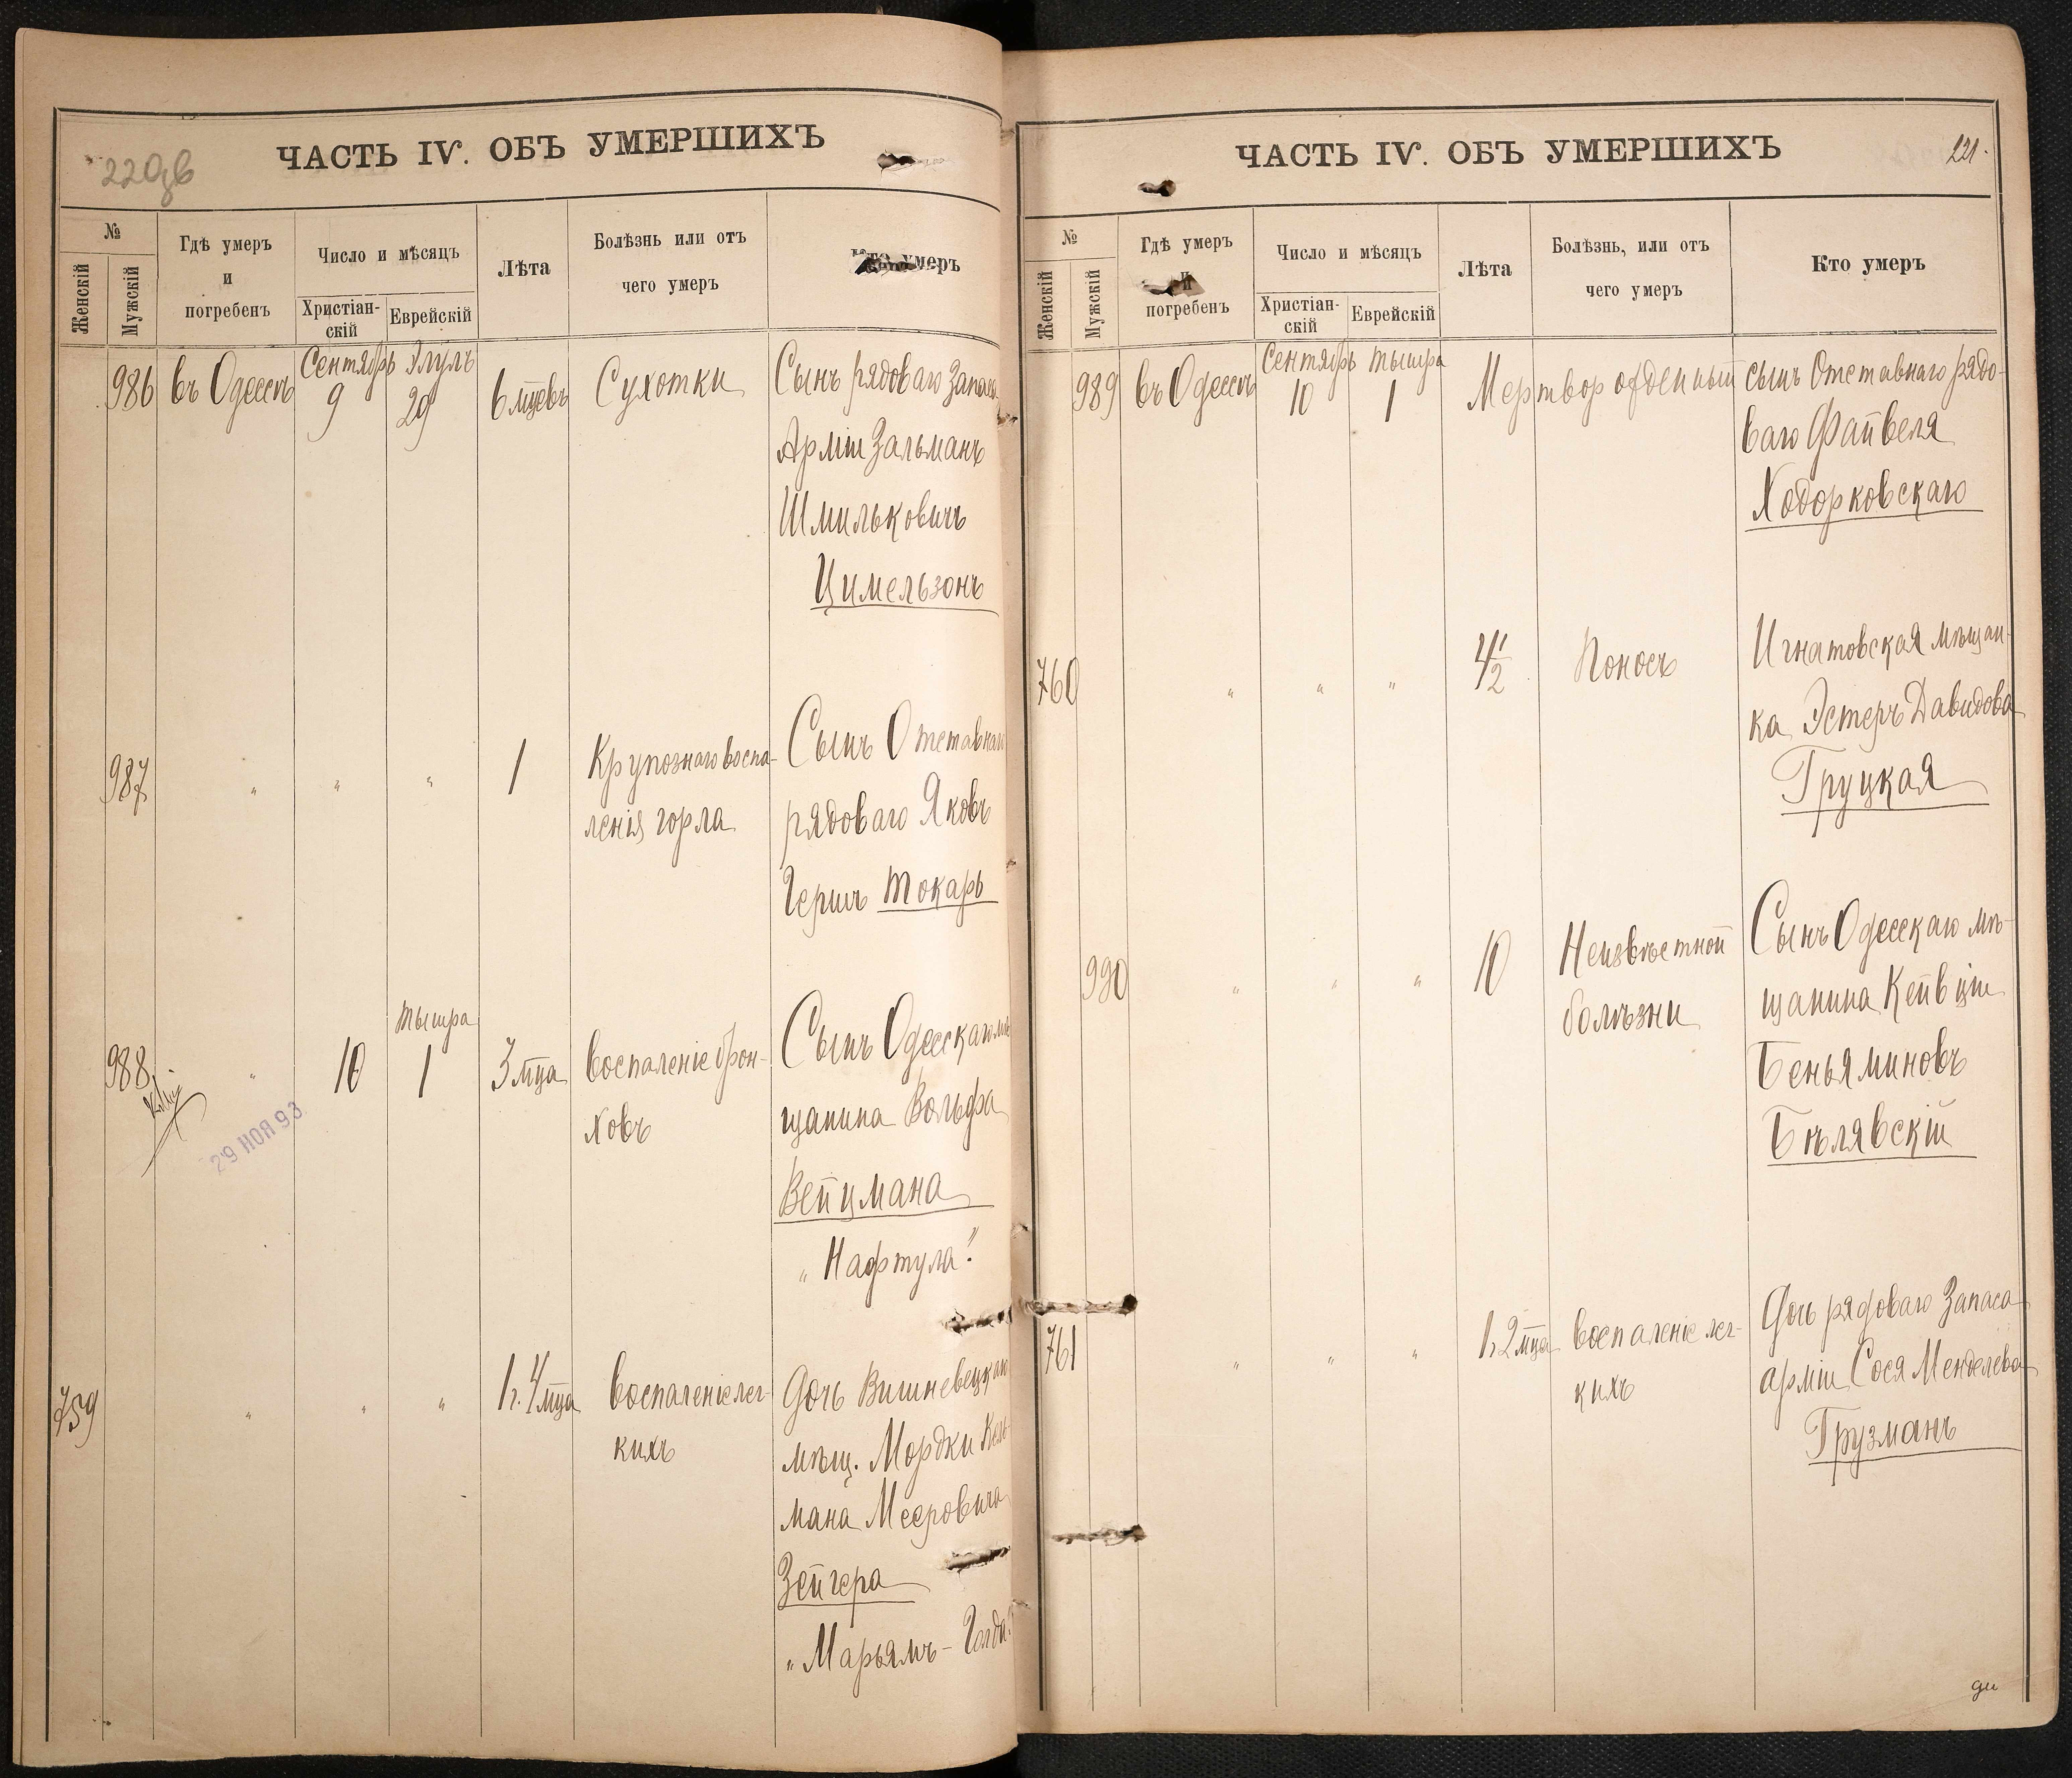 ЧАСТЬ IV. ОБЪ УМЕРШИХЪ
220об
№
Женскій
Мужскій
Гдѣ умеръ
и
погребенъ
Число и мѣсяцъ
Христіан-
скій
Еврейскій
Лѣта
Болѣзнь или отъ
чего умеръ
Кто умеръ
Сентябрь Элулъ
986 въ Одессѣ 9 29 6 мцевъ Сухотки Сынъ рядоваго Запаса
Арміи Зальманъ
Шмильковичъ
Цимельзонъ
987 " " " 1 Крупознаго воспа-
ленія горла
Сынъ Отставнаго
рядоваго Яковъ
Гершъ Токарь
Тышра
988 " 10 1 3 мца Воспаленіе брон-
ховъ
29 НОЯ 93
Сынъ Одесскаго мѣ
щанина Вольфа
Вейцмана
"Нафтула".
759 " " " 1 г. 4 мца Воспаленіе лег-
кихъ
Дочь Вишневецкаго
мѣщ. Мордки Кель-
мана Мееровича
Зейгера
"Марьямъ - Голда"
ЧАСТЬ IV. ОБЪ УМЕРШИХЪ
221.
№
Женскій
Мужскій
Гдѣ умеръ
и
погребенъ
Число и мѣсяцъ
Христіан-
скій
Еврейскій
Лѣта
Болѣзнь, или отъ
чего умеръ
Кто умеръ
Сентябрь Тышра
989 въ Одессѣ 10 1 Мертворожденный сынъ Отставнаго рядо-
ваго Файвеля
Ходорковскаго
760 " " " 4 1/2 Поносъ Игнатовская мѣщан-
ка Эстеръ Давидова
Груцкая
990 " " " 10 Неизвѣстной
болѣзни
Сынъ Одесскаго мѣ-
щанина Кейвцiи
Беньяминовъ
Бѣлявскій
761 " " " 1 г. 2 мца Воспаленіе лег-
кихъ
Дочь рядоваго Запаса
арміи Сося Менделева
Грузманъ